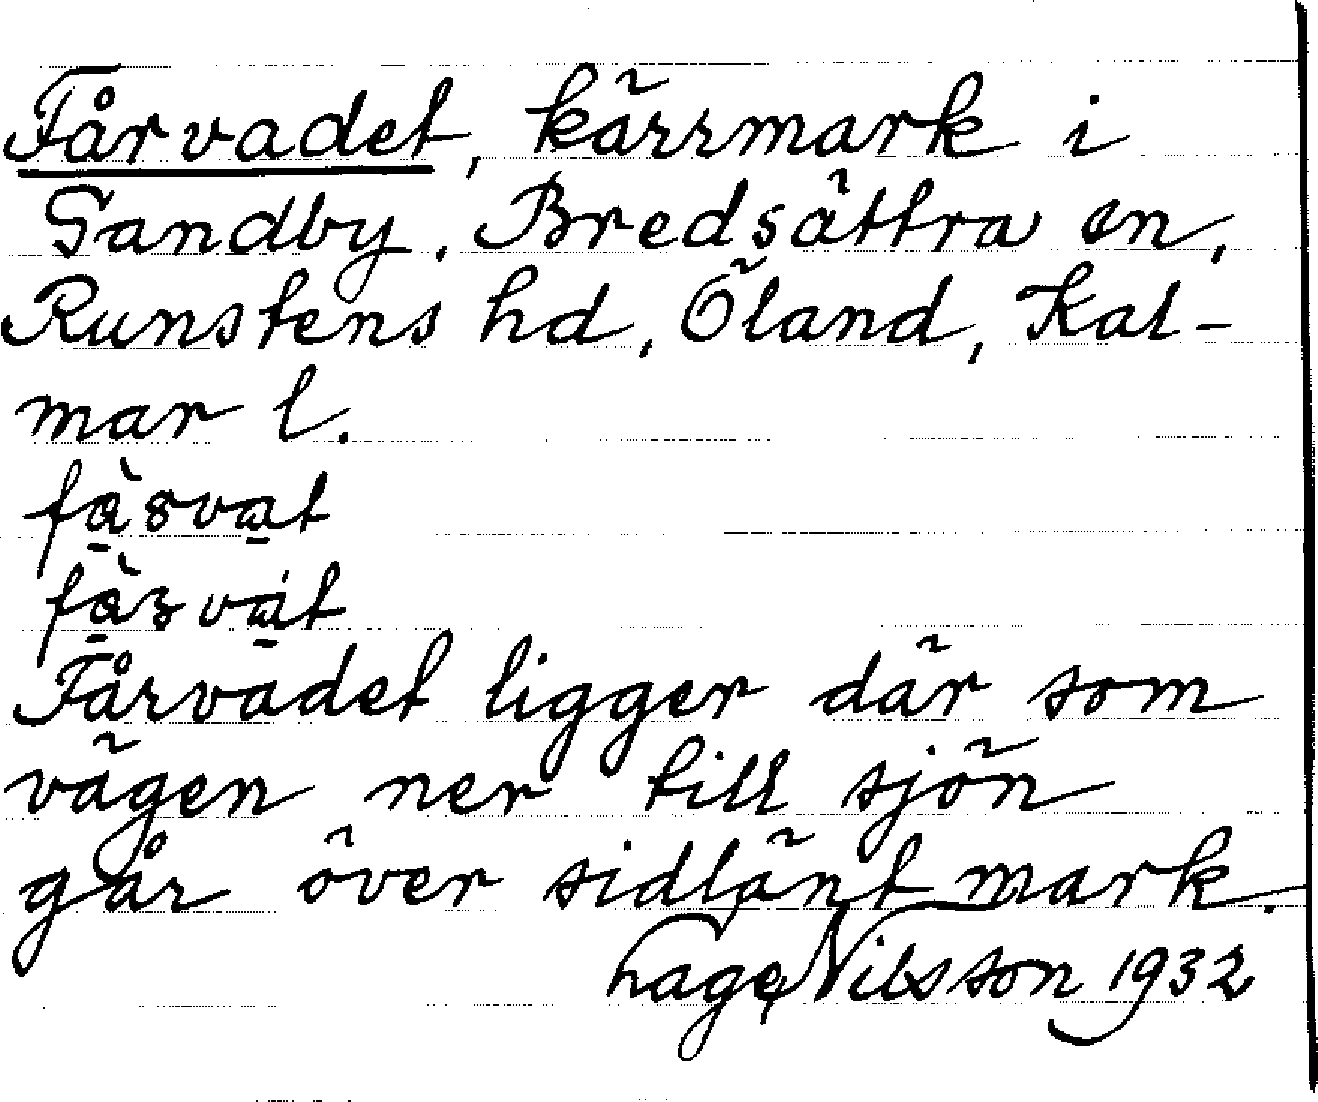 Fårvadet, kärrmark i
Sandby, Bredsättra sn,
Runstens hd, Öland, Kal-
mar l.
Fårvadet ligger där som
vägen ner till sjön
går över sidlänt mark.
Hage Nilsson 1932